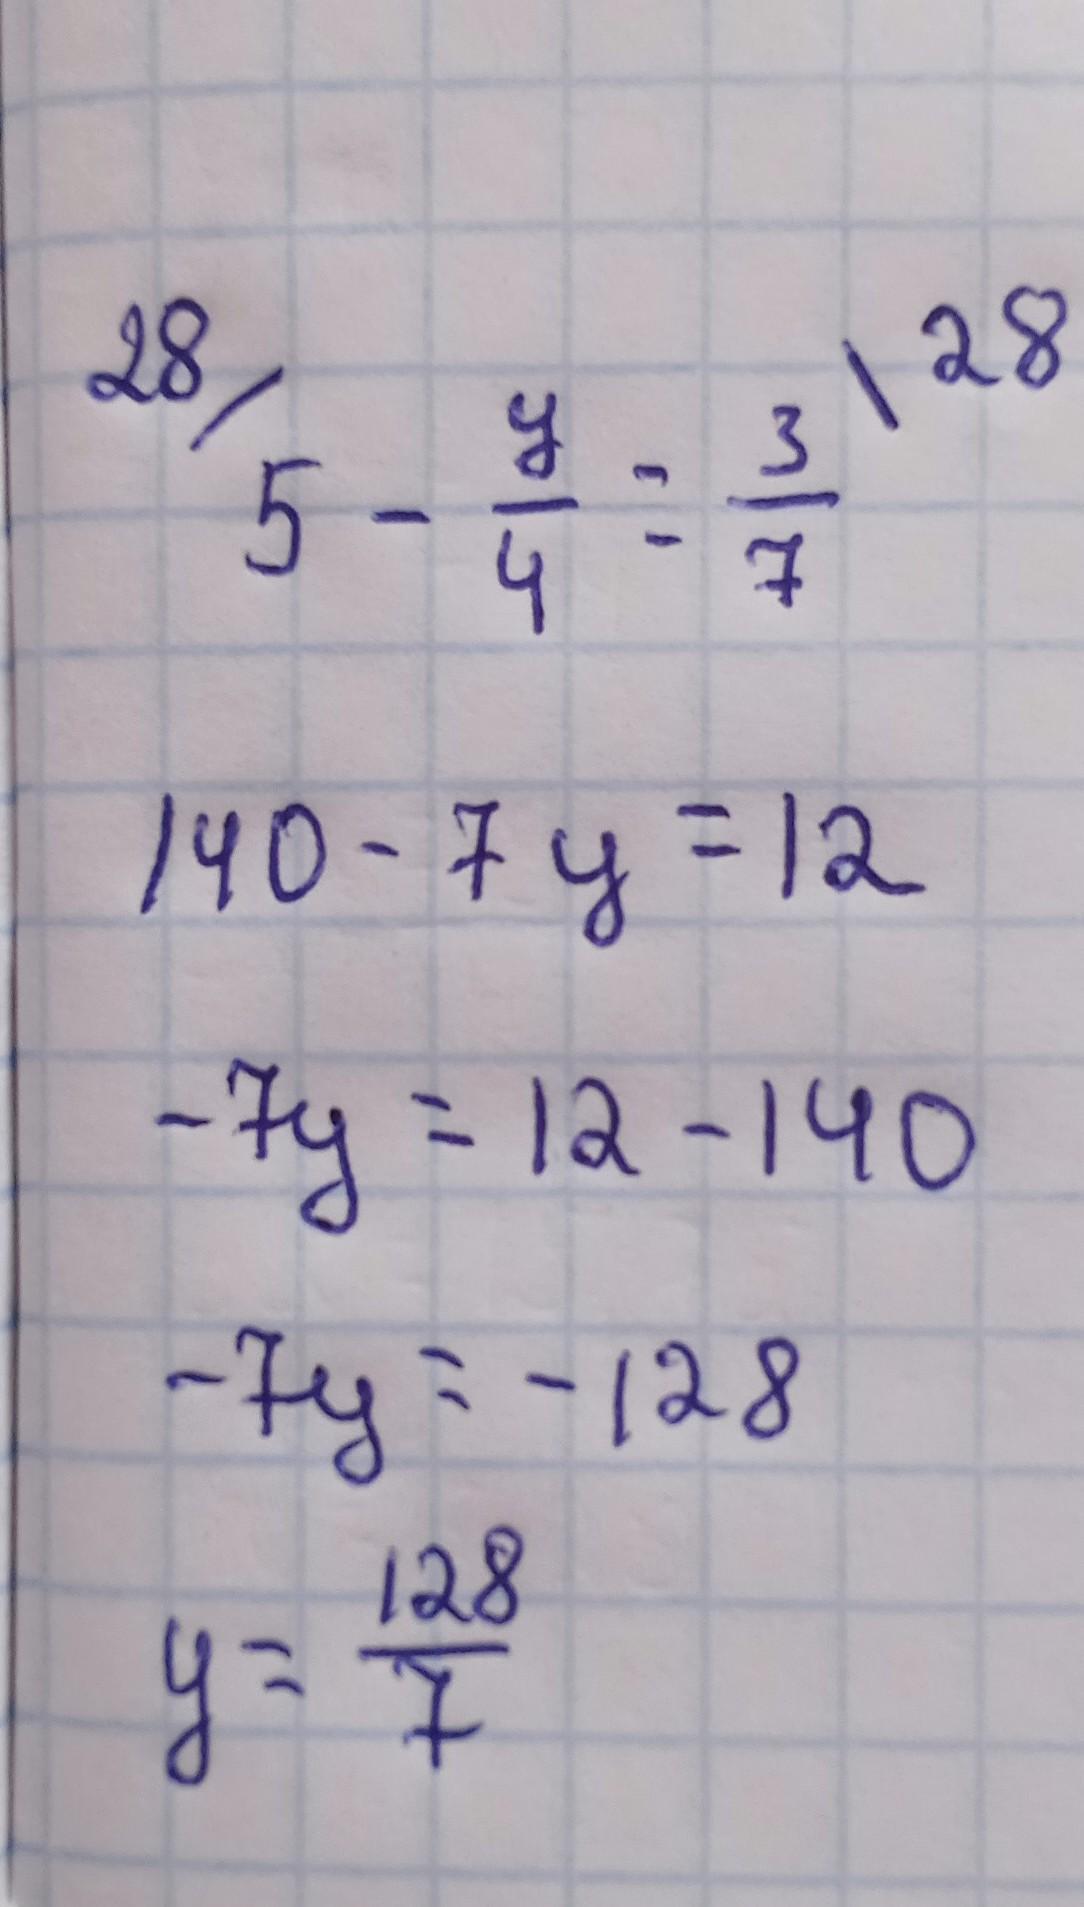 28/ 5 - y/4 = 3/7 \28
140 - 7y = 12
-7y = 12 - 140
-7y = -128
y = 128/7